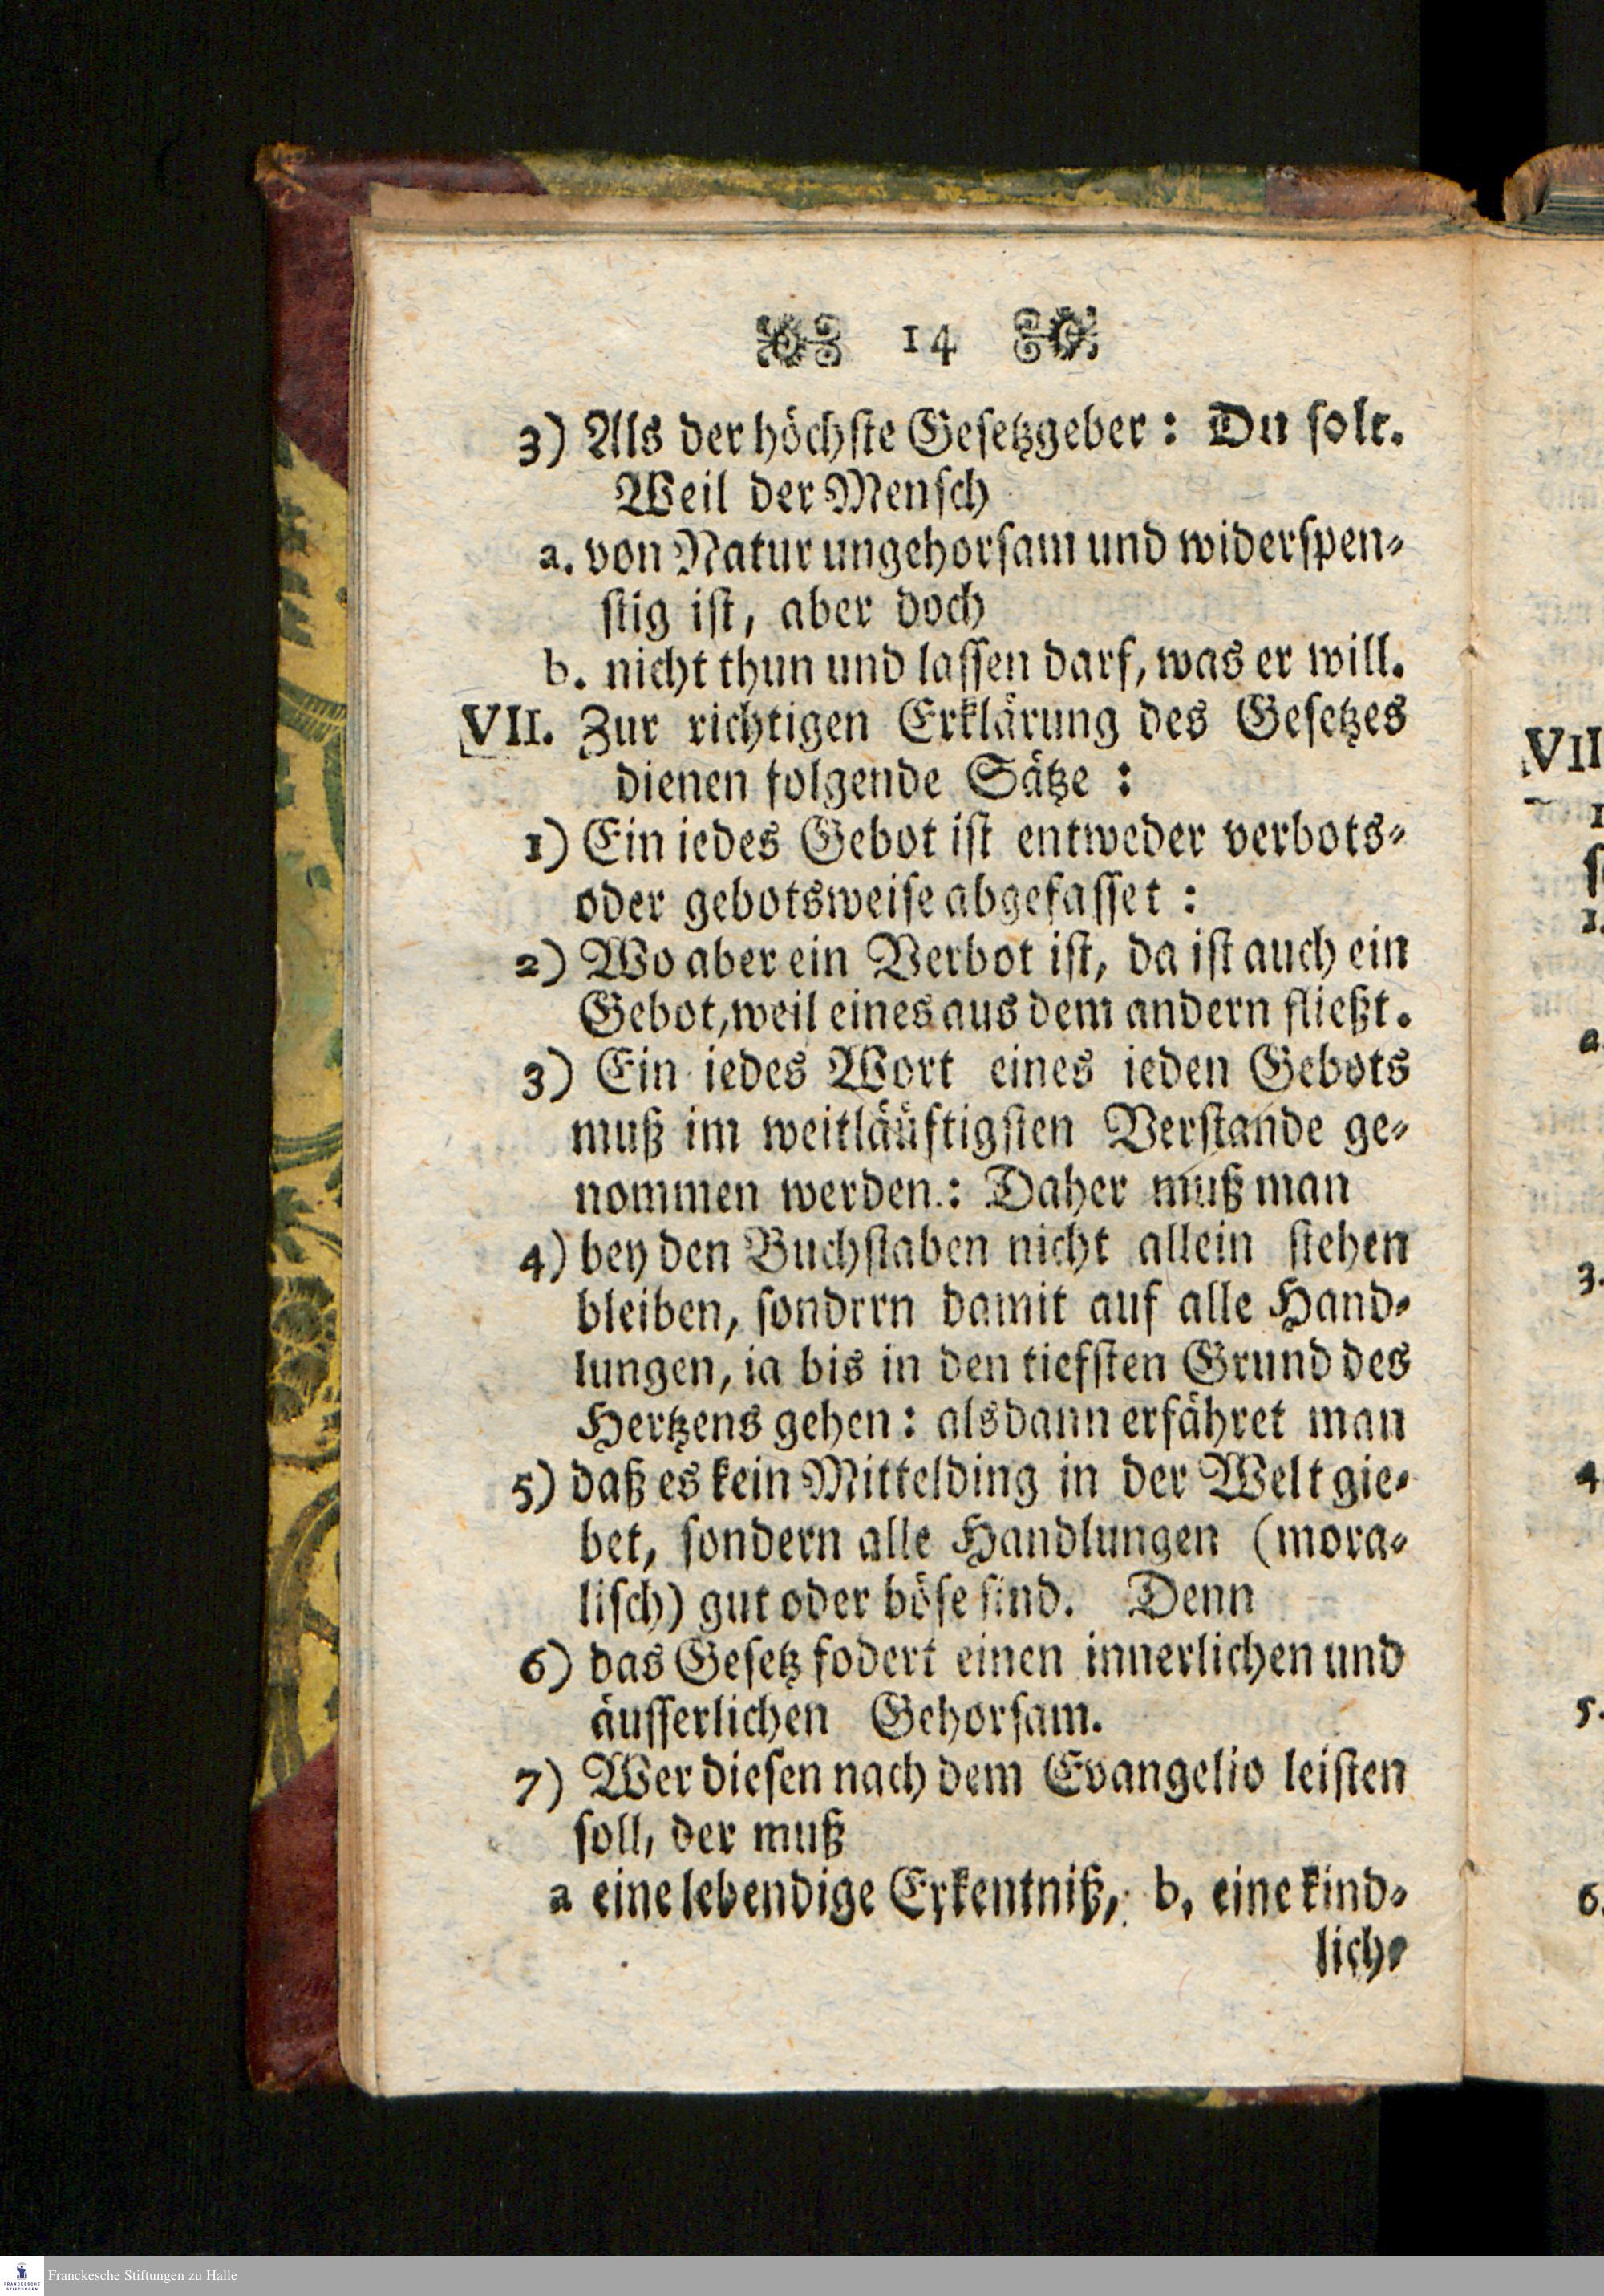 14
3) Als der höchste Gesetzgeber: Du solt.
Weil der Mensch
a. von Natur ungehorsam und widerspen-
stig ist, aber doch
b. nicht thun und lassen darf, was er will.
VII. Zur richtigen Erklärung des Gesetzes
dienen folgende Sätze:
1) Ein iedes Gebot ist entweder verbots-
oder gebotsweise abgefasset:
2) Wo aber ein Verbot ist, da ist auch ein
Gebot, weil eines aus dem andern fließt.
3) Ein iedes Wort eines ieden Gebots
muß im weitläuftigsten Verstande ge-
nommen werden: Daher muß man
4) bey den Buchstaben nicht allein stehen
bleiben, sondrrn damit auf alle Hand-
lungen, ia bis in den tiefsten Grund des
Hertzens gehen: alsdann erfähret man
5) daß es kein Mittelding in der Welt gie-
bet, sondern alle Handlungen (mora-
lisch) gut oder böse sind. Denn
6) das Gesetz fodert einen innerlichen und
äusserlichen Gehorsam.
7) Wer diesen nach dem Evangelio leisten
soll, der muß
a eine lebendige Erkentniß, b. eine kind-
lich-
VII
1
1.
a.
3.
4
5.
6.
Franckesche Stiftungen zu Halle
FRANCKESCHE
STIFTUNGEN